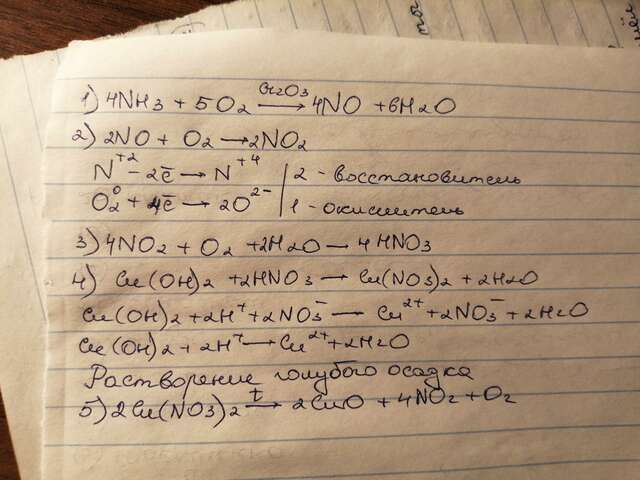 1) 4NH3 + 5O2 Cr2O3→ 4NO + 6H2O
2) 2NO + O2 → 2NO2
N+2 - 2ē → N+4 | 2 - восстановитель
O2 0 + 4ē → 2O2- | 1 - окислитель
3) 4NO2 + O2 + 2H2O → 4HNO3
4) Cu(OH)2 + 2HNO3 → Cu(NO3)2 + 2H2O
Cu(OH)2 + 2H+ + 2NO3- → Cu2+ + 2NO3- + 2H2O
Cu(OH)2 + 2H+ → Cu2+ + 2H2O
Растворение голубого осадка
5) 2Cu(NO3)2 t→ 2CuO + 4NO2 + O2